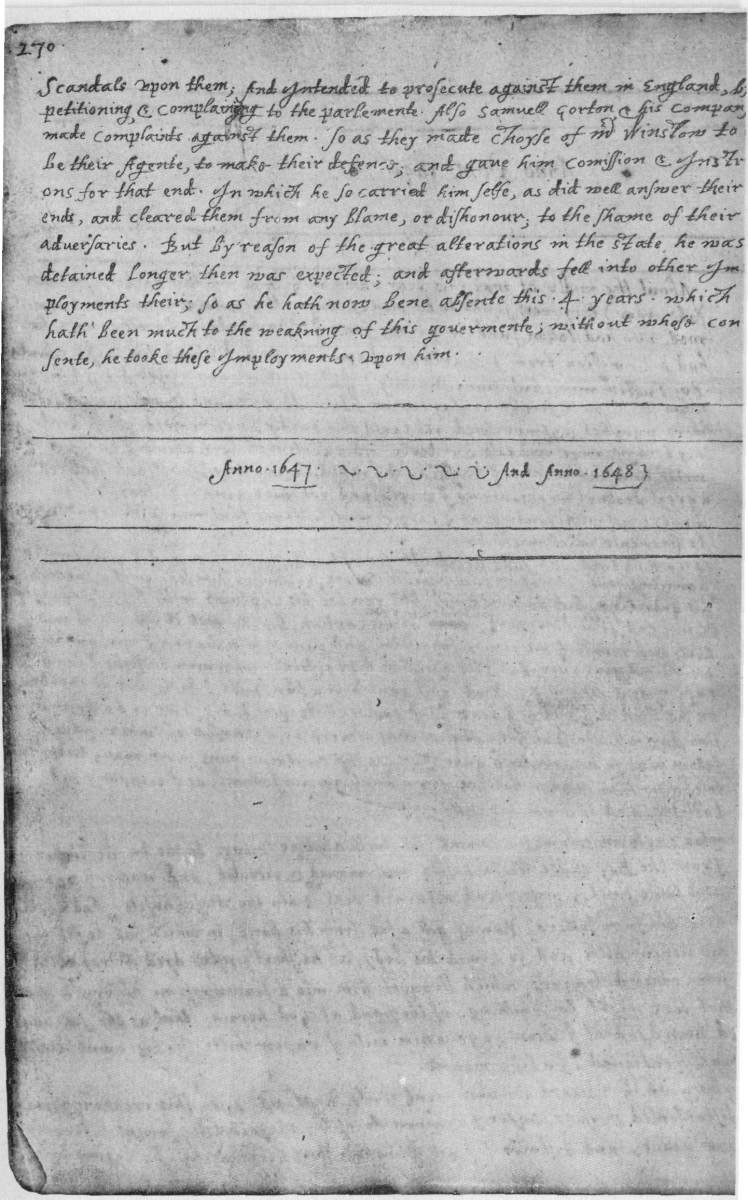 270.
Scandals upon them; And Intended to prosecute against them in England, by
petitioning, & Complaining to the parlemente. Also Samuell Gorton & his Company
made Complaints against them. So as they made Choyse of mr Winslow to
be their Agente, to make their defence; and gave him Comission & Instr
ons for that end. In which he so carried him selfe, as did well answer their
ends, and cleared them from any blame, or dishonour; to the shame of their
adversaries. But by reason of the great alterations in the state, he was
detained longer then was expected; and afterwards fell into other Im
ployments their; so as he hath now bene absente this .4. years. which
hath been much to the weakning of this govermente; without whose con
sente, he tooke these Imployments upon him.
Anno .1647. And Anno .1648